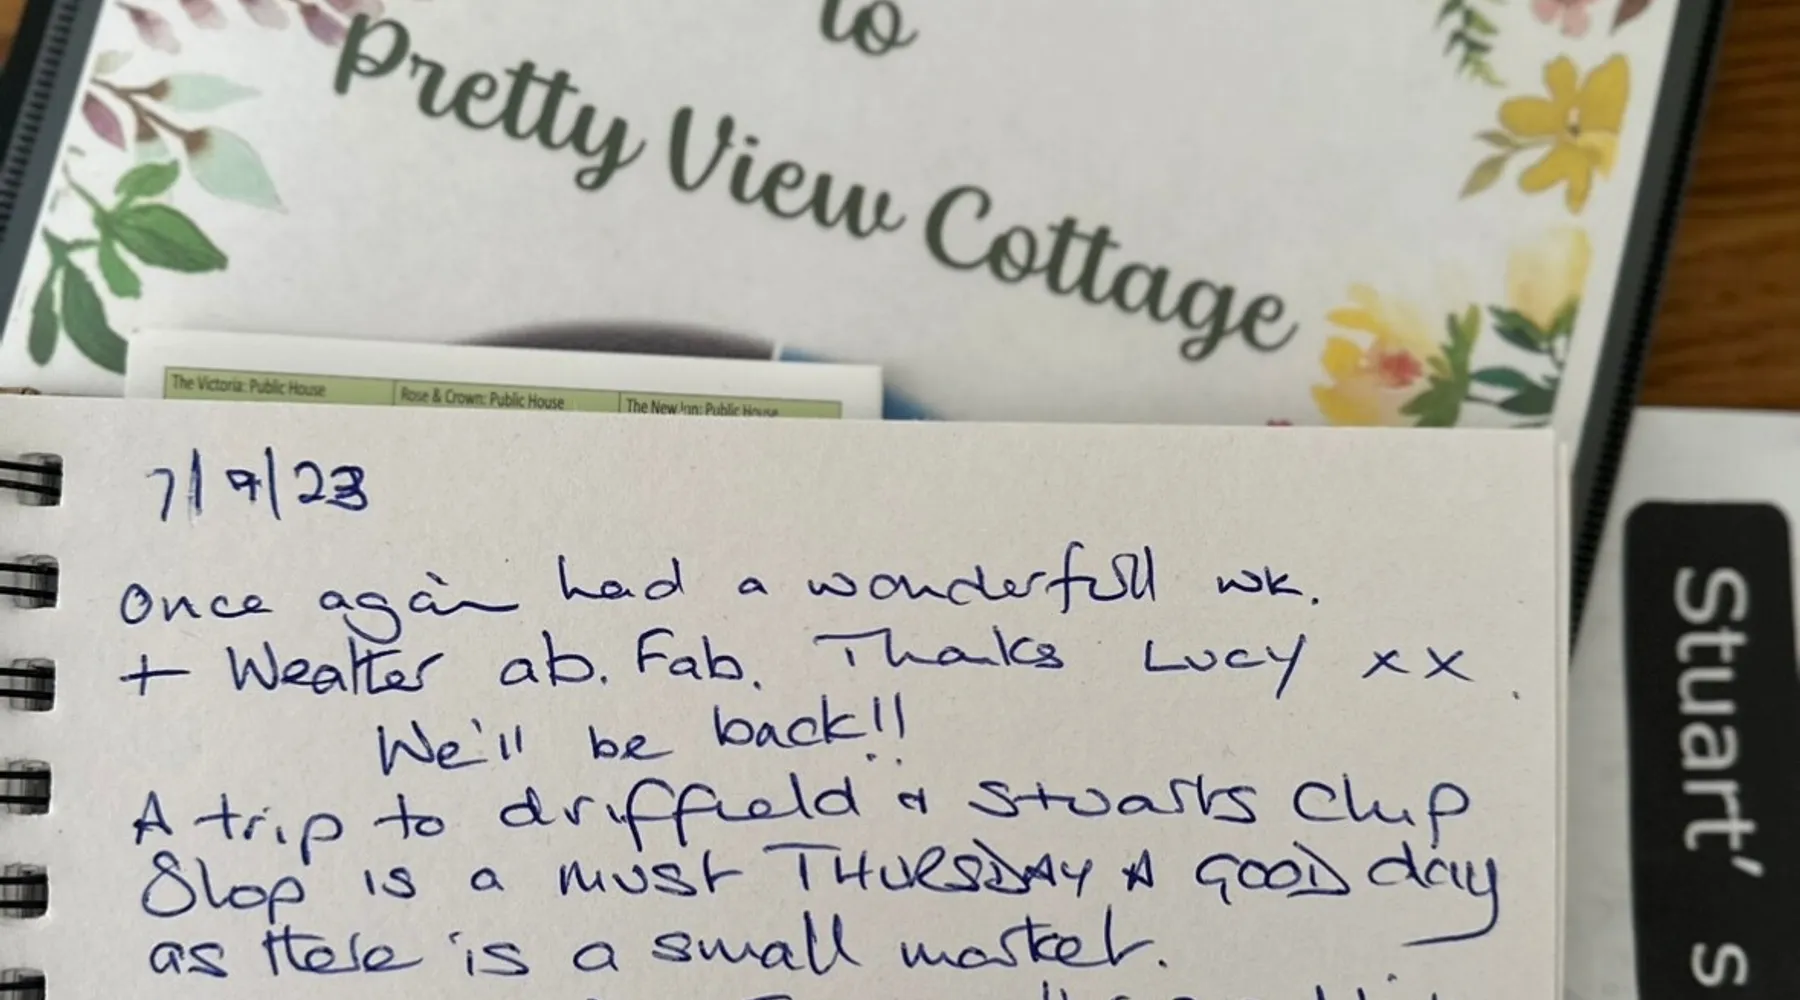 to
Pretty View Cottage
The Victoria: Public House
Rose & Crown: Public House
The New Inn: Public House
7/9/23
Once again had a wonderfull wk.
+ Weather ab. Fab. Thanks Lucy xx.
We'll be back!!
A trip to driffield & Stuarts Chip
Shop is a must THURSDAY A GOOD day
as there is a small market.
Stuart's